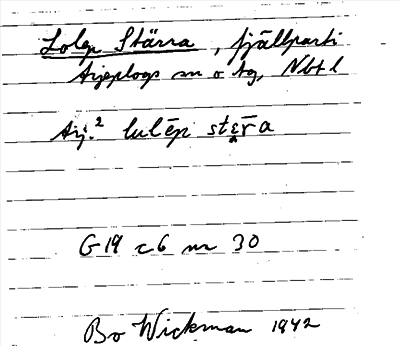 Lulep Stärra, fjällparti
Arjeplogs sn o tg, Nbtl
Arj.² lulēp stɛr̄a
G19 c6 nr 30
Bo Wickman 1942